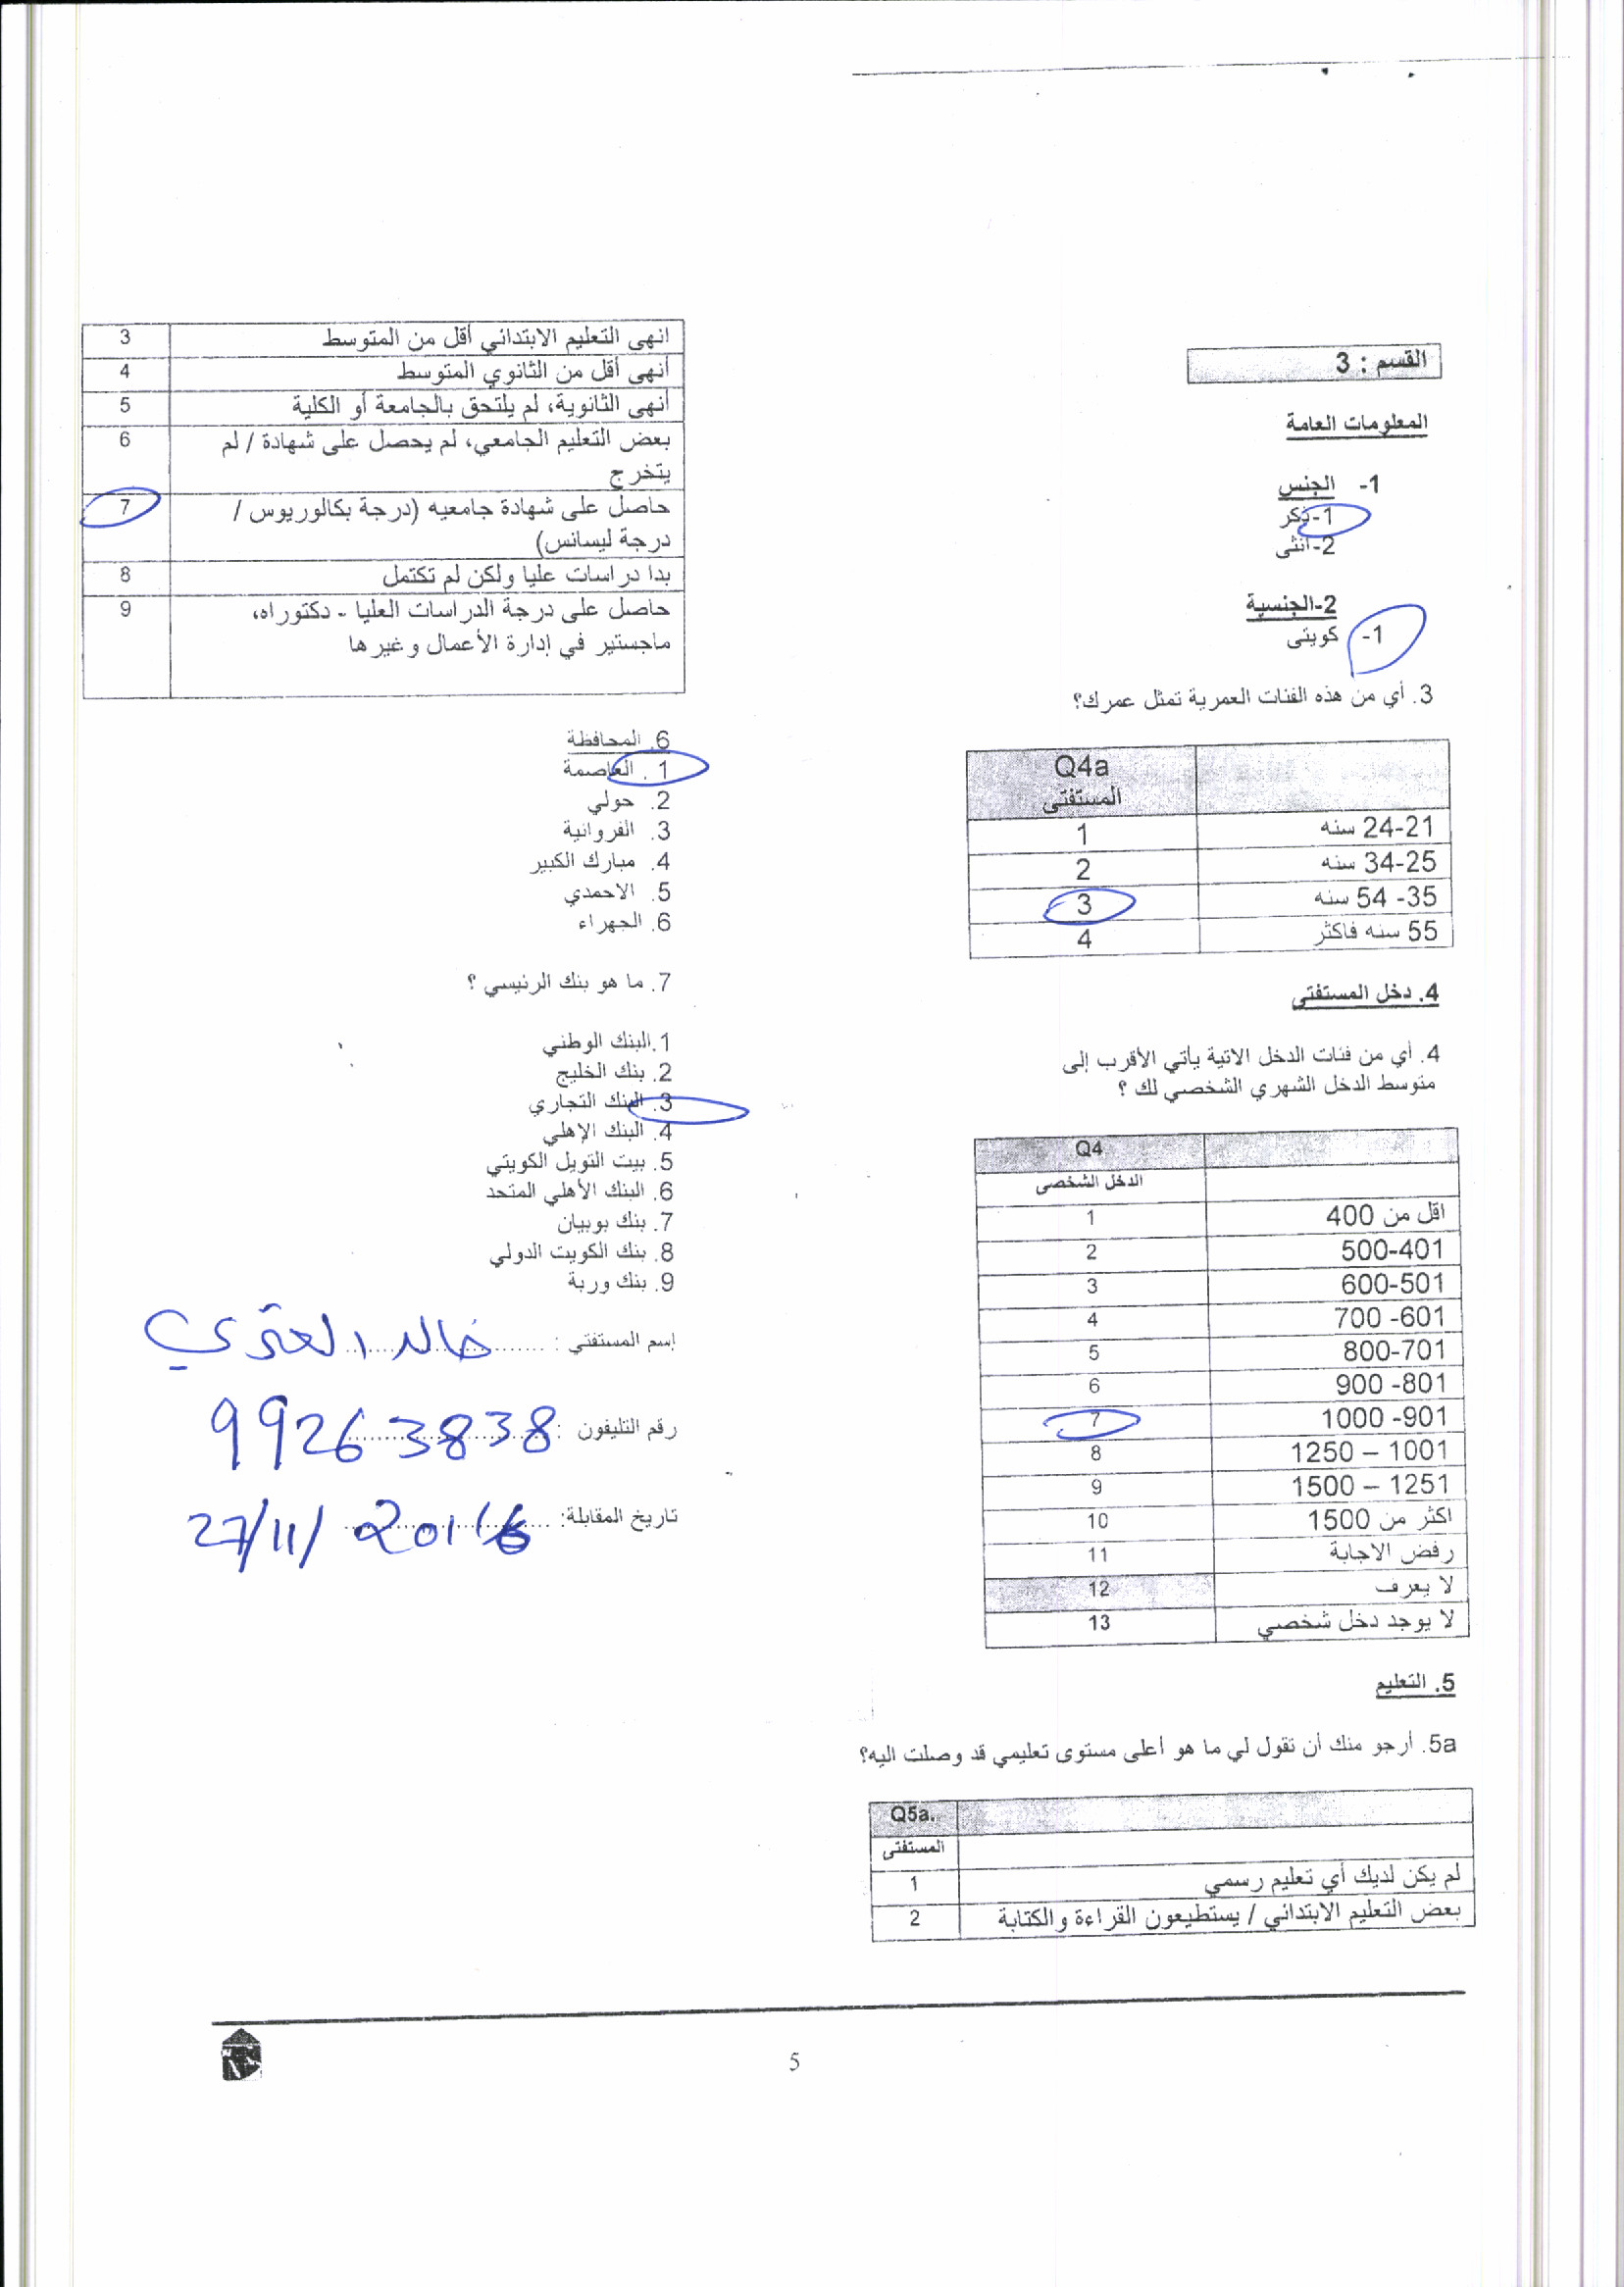 القسم : 3
المعلومات العامة
1- الجنس
1-ذكر
2-انثى
2-الجنسية
1- كويتى
3. أي من هذه الفئات العمرية تمثل عمرك؟
Q4a
المستفتى
24-21 سنه 1
34-25 سنه 2
35- 54 سنه 3
55 سنه فاكثر 4
4. دخل المستفتى
4. أي من فئات الدخل الاتية يأتي الأقرب إلى
متوسط الدخل الشهري الشخصي لك ؟
Q4
الدخل الشخصى
اقل من 400 1
500-401 2
600-501 3
700 -601 4
800-701 5
900 -801 6
1000 -901 7
1250 – 1001 8
1500 – 1251 9
اكثر من 1500 10
رفض الاجابة 11
لا يعرف 12
لا يوجد دخل شخصي 13
5. التعليم
5a. أرجو منك أن تقول لي ما هو أعلى مستوى تعليمي قد وصلت اليه؟
Q5a.
المستفتى
لم يكن لديك أي تعليم رسمي 1
بعض التعليم الابتدائي / يستطيعون القراءة والكتابة 2
انهى التعليم الابتدائي أقل من المتوسط 3
أنهى أقل من الثانوي المتوسط 4
أنهى الثانوية، لم يلتحق بالجامعة أو الكلية 5
بعض التعليم الجامعي، لم يحصل على شهادة / لم 6
يتخرج
حاصل على شهادة جامعيه (درجة بكالوريوس / 7
درجة ليسانس)
بدا دراسات عليا ولكن لم تكتمل 8
حاصل على درجة الدراسات العليا - دكتوراه، 9
ماجستير في إدارة الأعمال وغيرها
6. المحافظة
1. العاصمة
2. حولي
3. الفروانية
4. مبارك الكبير
5. الاحمدي
6. الجهراء
7. ما هو بنك الرئيسي ؟
1.البنك الوطني
2. بنك الخليج
3. البنك التجاري
4. البنك الإهلي
5. بيت التويل الكويتي
6. البنك الأهلي المتحد
7. بنك بوبيان
8. بنك الكويت الدولي
9. بنك وربة
إسم المستفتي : خالد العنزي
رقم التليفون : 99263838
تاريخ المقابلة: 27/11/2016
5